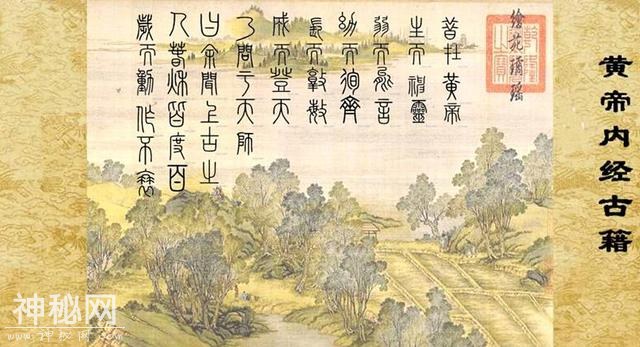 黄帝内经古籍
繪苑璚瑤
昔在黃帝
生而神靈
弱而能言
幼而徇齊
長而敦敏
成而登天
乃問于天師
曰余聞上古之
人春秋皆度百
歲而動作不衰
神秘网